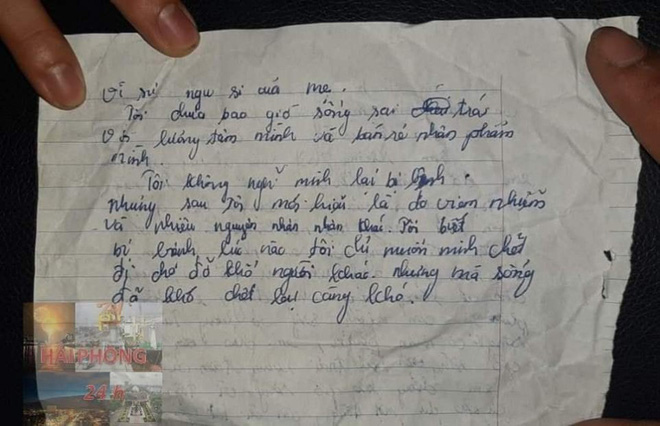 Vì sự ngu si của mẹ.
Tôi chưa bao giờ sống sai trái
với lương tâm mình và bán rẻ nhân phẩm
mình.
Tôi không nghĩ mình lại bị bệnh.
nhưng sau tôi mới hiểu là do viêm nhiễm
vì nhiều nguyên nhân nhân khác. Tôi biết
bị bệnh lúc nào tôi chỉ muốn mình chết
đi cho đỡ khổ người khác. nhưng mà sống
đã khó chết lại càng khó.
24
HẢI PHÒNG
24h